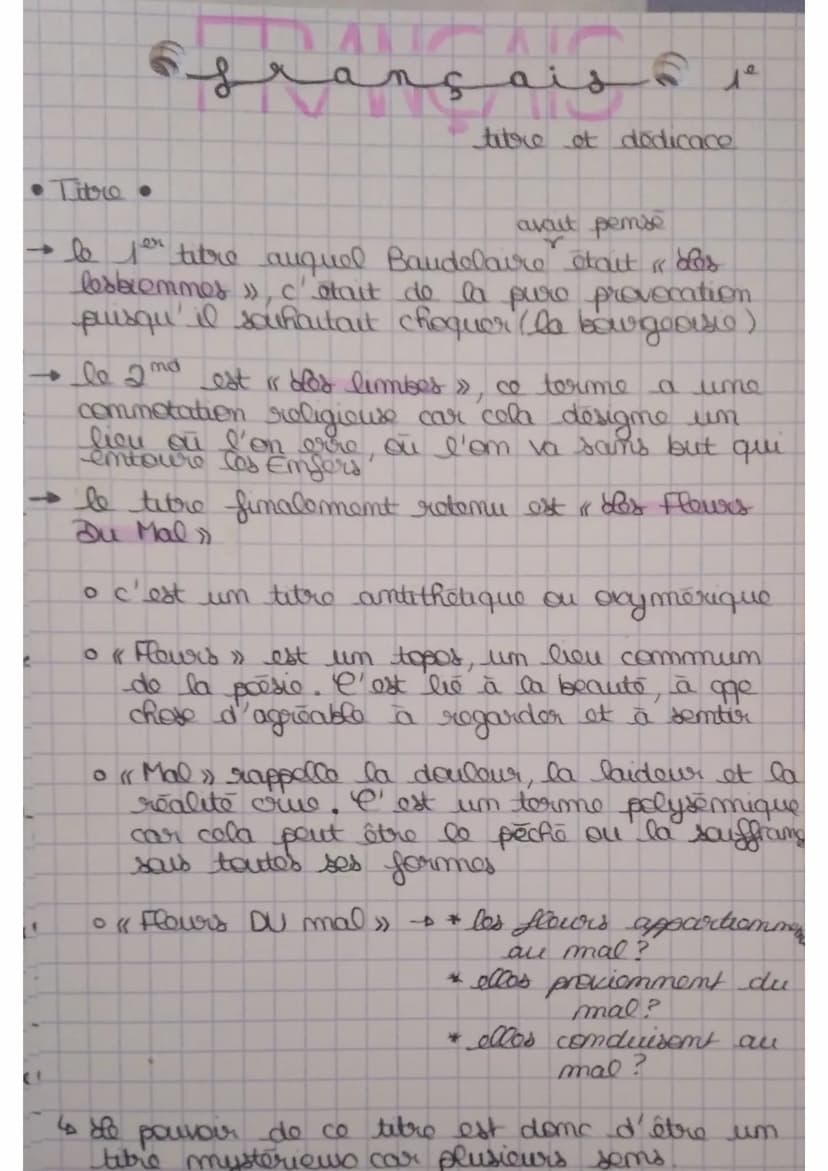 FRANÇAIS
français 1e
titre et dédicace
• Titre •
avait pensé
→ le 1er titre auquel Baudelaire était « Les
lesbiennes », c'était de la pure provocation
puisqu'il souhaitait choquer (la bourgeoisie)
→ le 2nd est « Les limbes », ce terme a une
connotation religieuse car cela désigne un
lieu où l'on erre, où l'on va sans but qui
entoure les Enfers
→ le titre finalement retenu est « Les Fleurs
Du Mal »
o c'est un titre antithétique ou oxymorique
o « Fleurs » est un topos, un lieu commun
de la poésie. C'est lié à la beauté, à qqe
chose d'agréable à regarder et à sentir
o « Mal » rappelle la douleur, la laideur et la
réalité crue. C'est un terme polysémique
car cela peut être le péché ou la souffran
sous toutes ses formes
o « Fleurs DU mal » → * les fleurs appartienne
au mal ?
* elles proviennent du
mal ?
* elles conduisent au
mal ?
↳ Le pouvoir de ce titre est donc d'être un
titre mystérieux car plusieurs sens